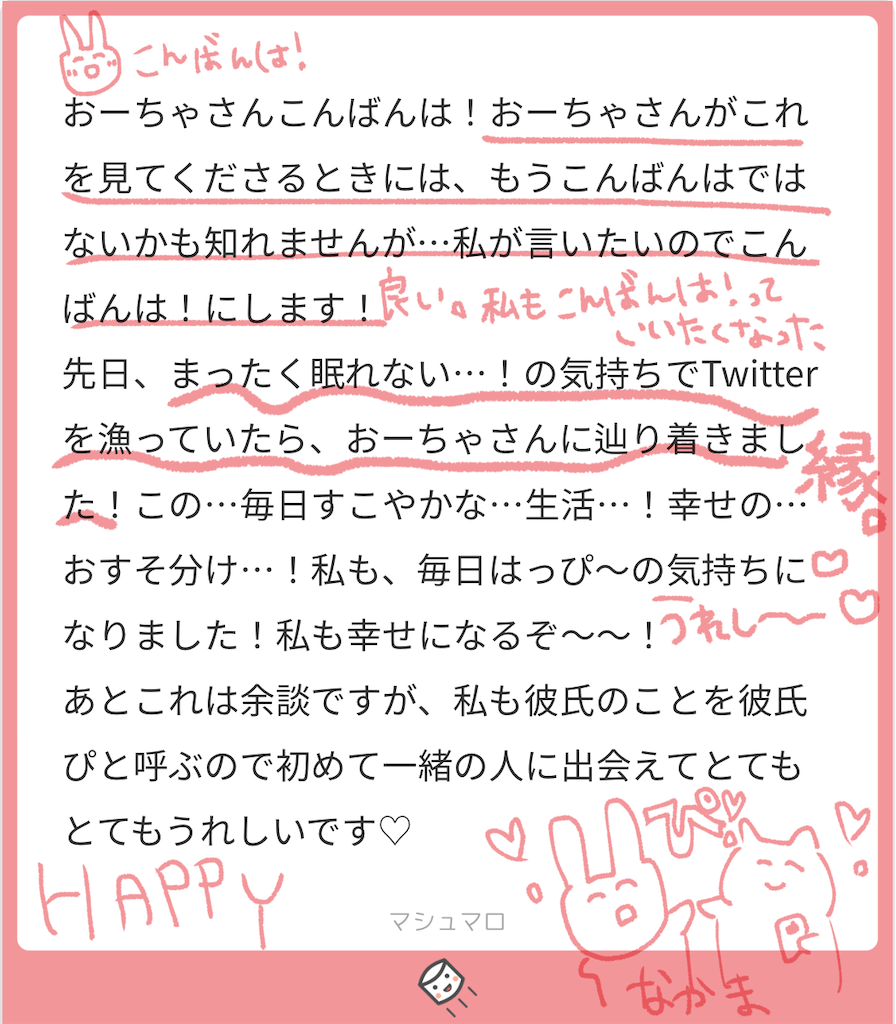 こんばんは!
おーちゃさんこんばんは！おーちゃさんがこれ
を見てくださるときには、もうこんばんはでは
ないかも知れませんが…私が言いたいのでこん
ばんは！にします！
良い。私もこんばんは!って
いいたくなった
先日、まったく眠れない…！の気持ちでTwitter
を漁っていたら、おーちゃさんに辿り着きまし
た！この…毎日すこやかな…生活…！幸せの…
縁。
おすそ分け…！私も、毎日はっぴ〜の気持ちに♡
なりました！私も幸せになるぞ〜〜！
うれし〜♡
あとこれは余談ですが、私も彼氏のことを彼氏
ぴと呼ぶので初めて一緒の人に出会えてとても
とてもうれしいです♡
ぴ♡
HAPPY
マシュマロ
なかま